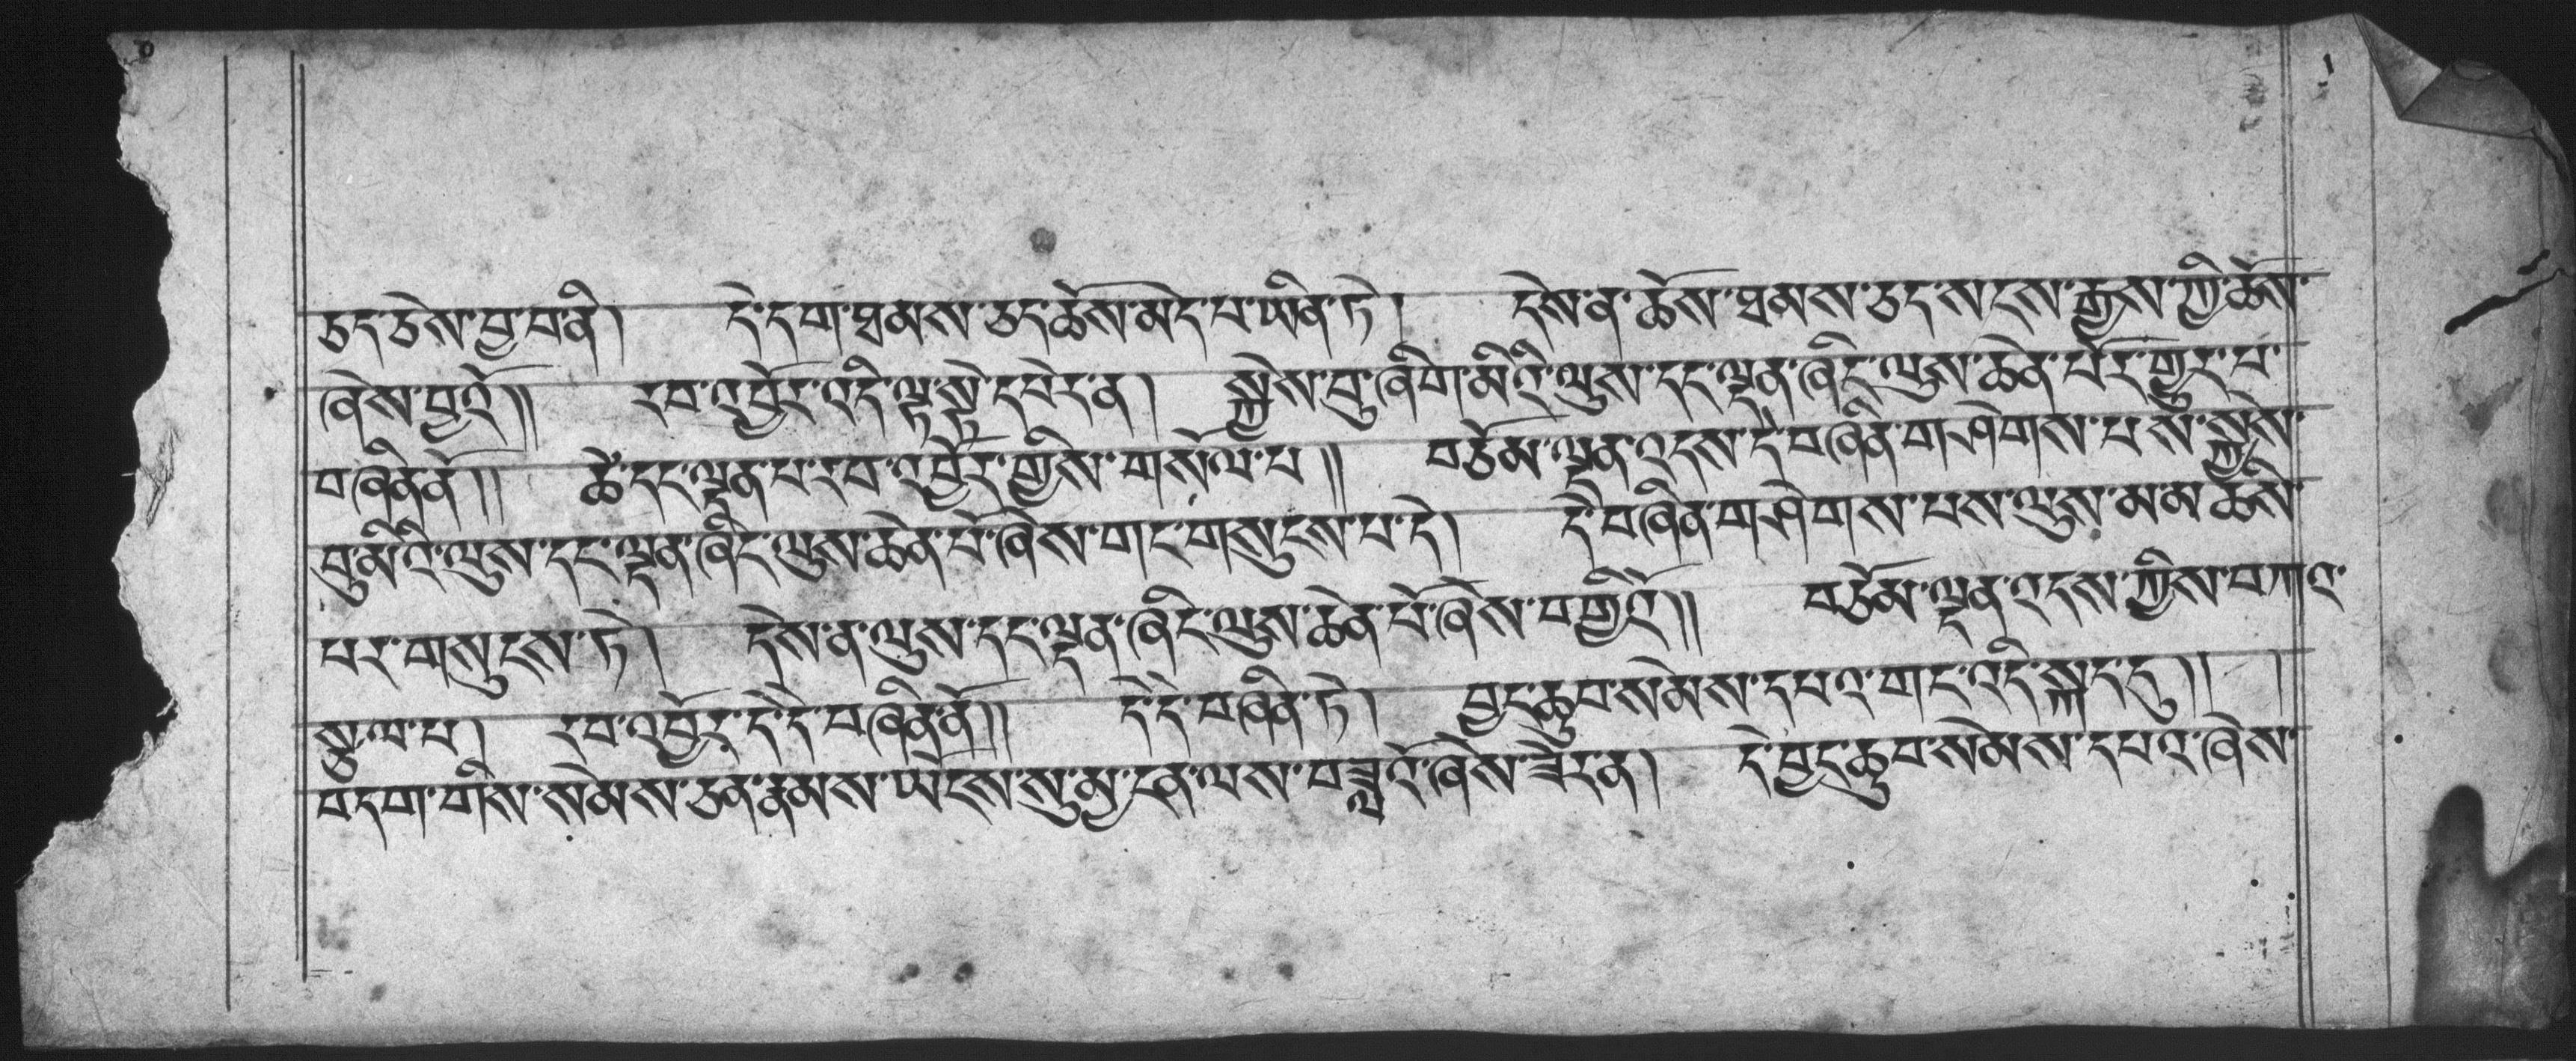 ཅད་ཅེས་བྱ་བ་ནི། དེ་དག་ཐམས་ཅད་ཆོས་མེད་པ་ཡིན་ཏེ། དེས་ན་ཆོས་ཐམས་ཅད་སངས་རྒྱས་ཀྱི་ཆོས་
ཞེས་བྱའོ།། རབ་འབྱོར་འདི་ལྟ་སྟེ་དཔེར་ན། སྐྱེས་བུ་ཞིག་མིའི་ལུས་དང་ལྡན་ཞིང་ལུས་ཆེན་པོར་གྱུར་པ་
བཞིན་ནོ།། ཚེ་དང་ལྡན་པ་རབ་འབྱོར་གྱིས་གསོལ་པ།། བཅོམ་ལྡན་འདས་དེ་བཞིན་གཤེགས་པས་སྐྱེས་
བུ་མིའི་ལུས་དང་ལྡན་ཞིང་ལུས་ཆེན་པོ་ཞེས་གང་གསུངས་པ་དེ། དེ་བཞིན་གཤེགས་པས་ལུས་མ་མཆིས་
པར་གསུངས་ཏེ། དེས་ན་ལུས་དང་ལྡན་ཞིང་ལུས་ཆེན་པོ་ཞེས་བགྱིའོ།། བཅོམ་ལྡན་འདས་ཀྱིས་བཀའ་
སྩལ་པ། རབ་འབྱོར་དེ་དེ་བཞིན་ནོ།། དེ་དེ་བཞིན་ཏེ། བྱང་ཆུབ་སེམས་དཔའ་གང་འདི་སྐད་དུ།།
བདག་གིས་སེམས་ཅན་རྣམས་ཡོངས་སུ་མྱ་ངན་ལས་བཟླའོ་ཞེས་ཟེར་ན། དེ་བྱང་ཆུབ་སེམས་དཔའ་ཞེས་